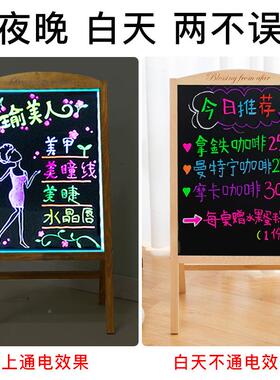 夜晚 白天 两不误
瑜美人
美甲
美瞳线
美睫
水晶唇
Blessing from afar
今日推荐
拿鐵咖啡25
曼特宁咖啡2
摩卡咖啡30
每桌贈水果
(1份
上通电效果
白天不通电效